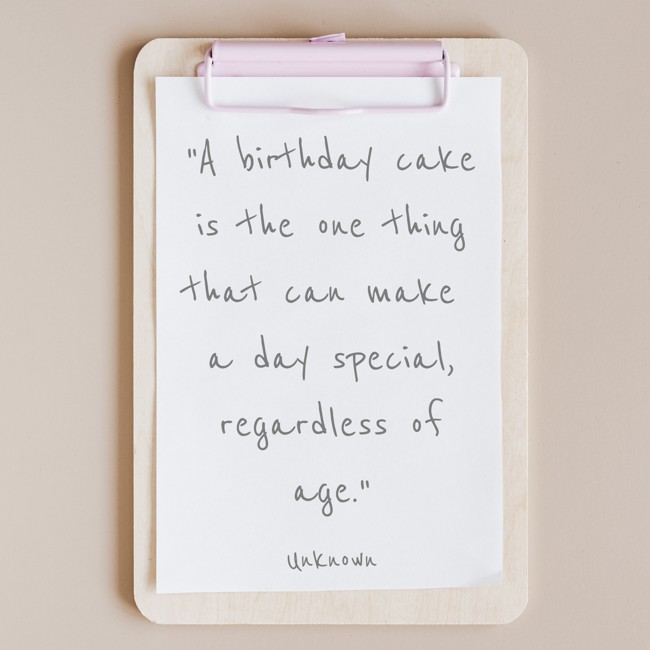 "A birthday cake
is the one thing
that can make
a day special,
regardless of
age."
Unknown